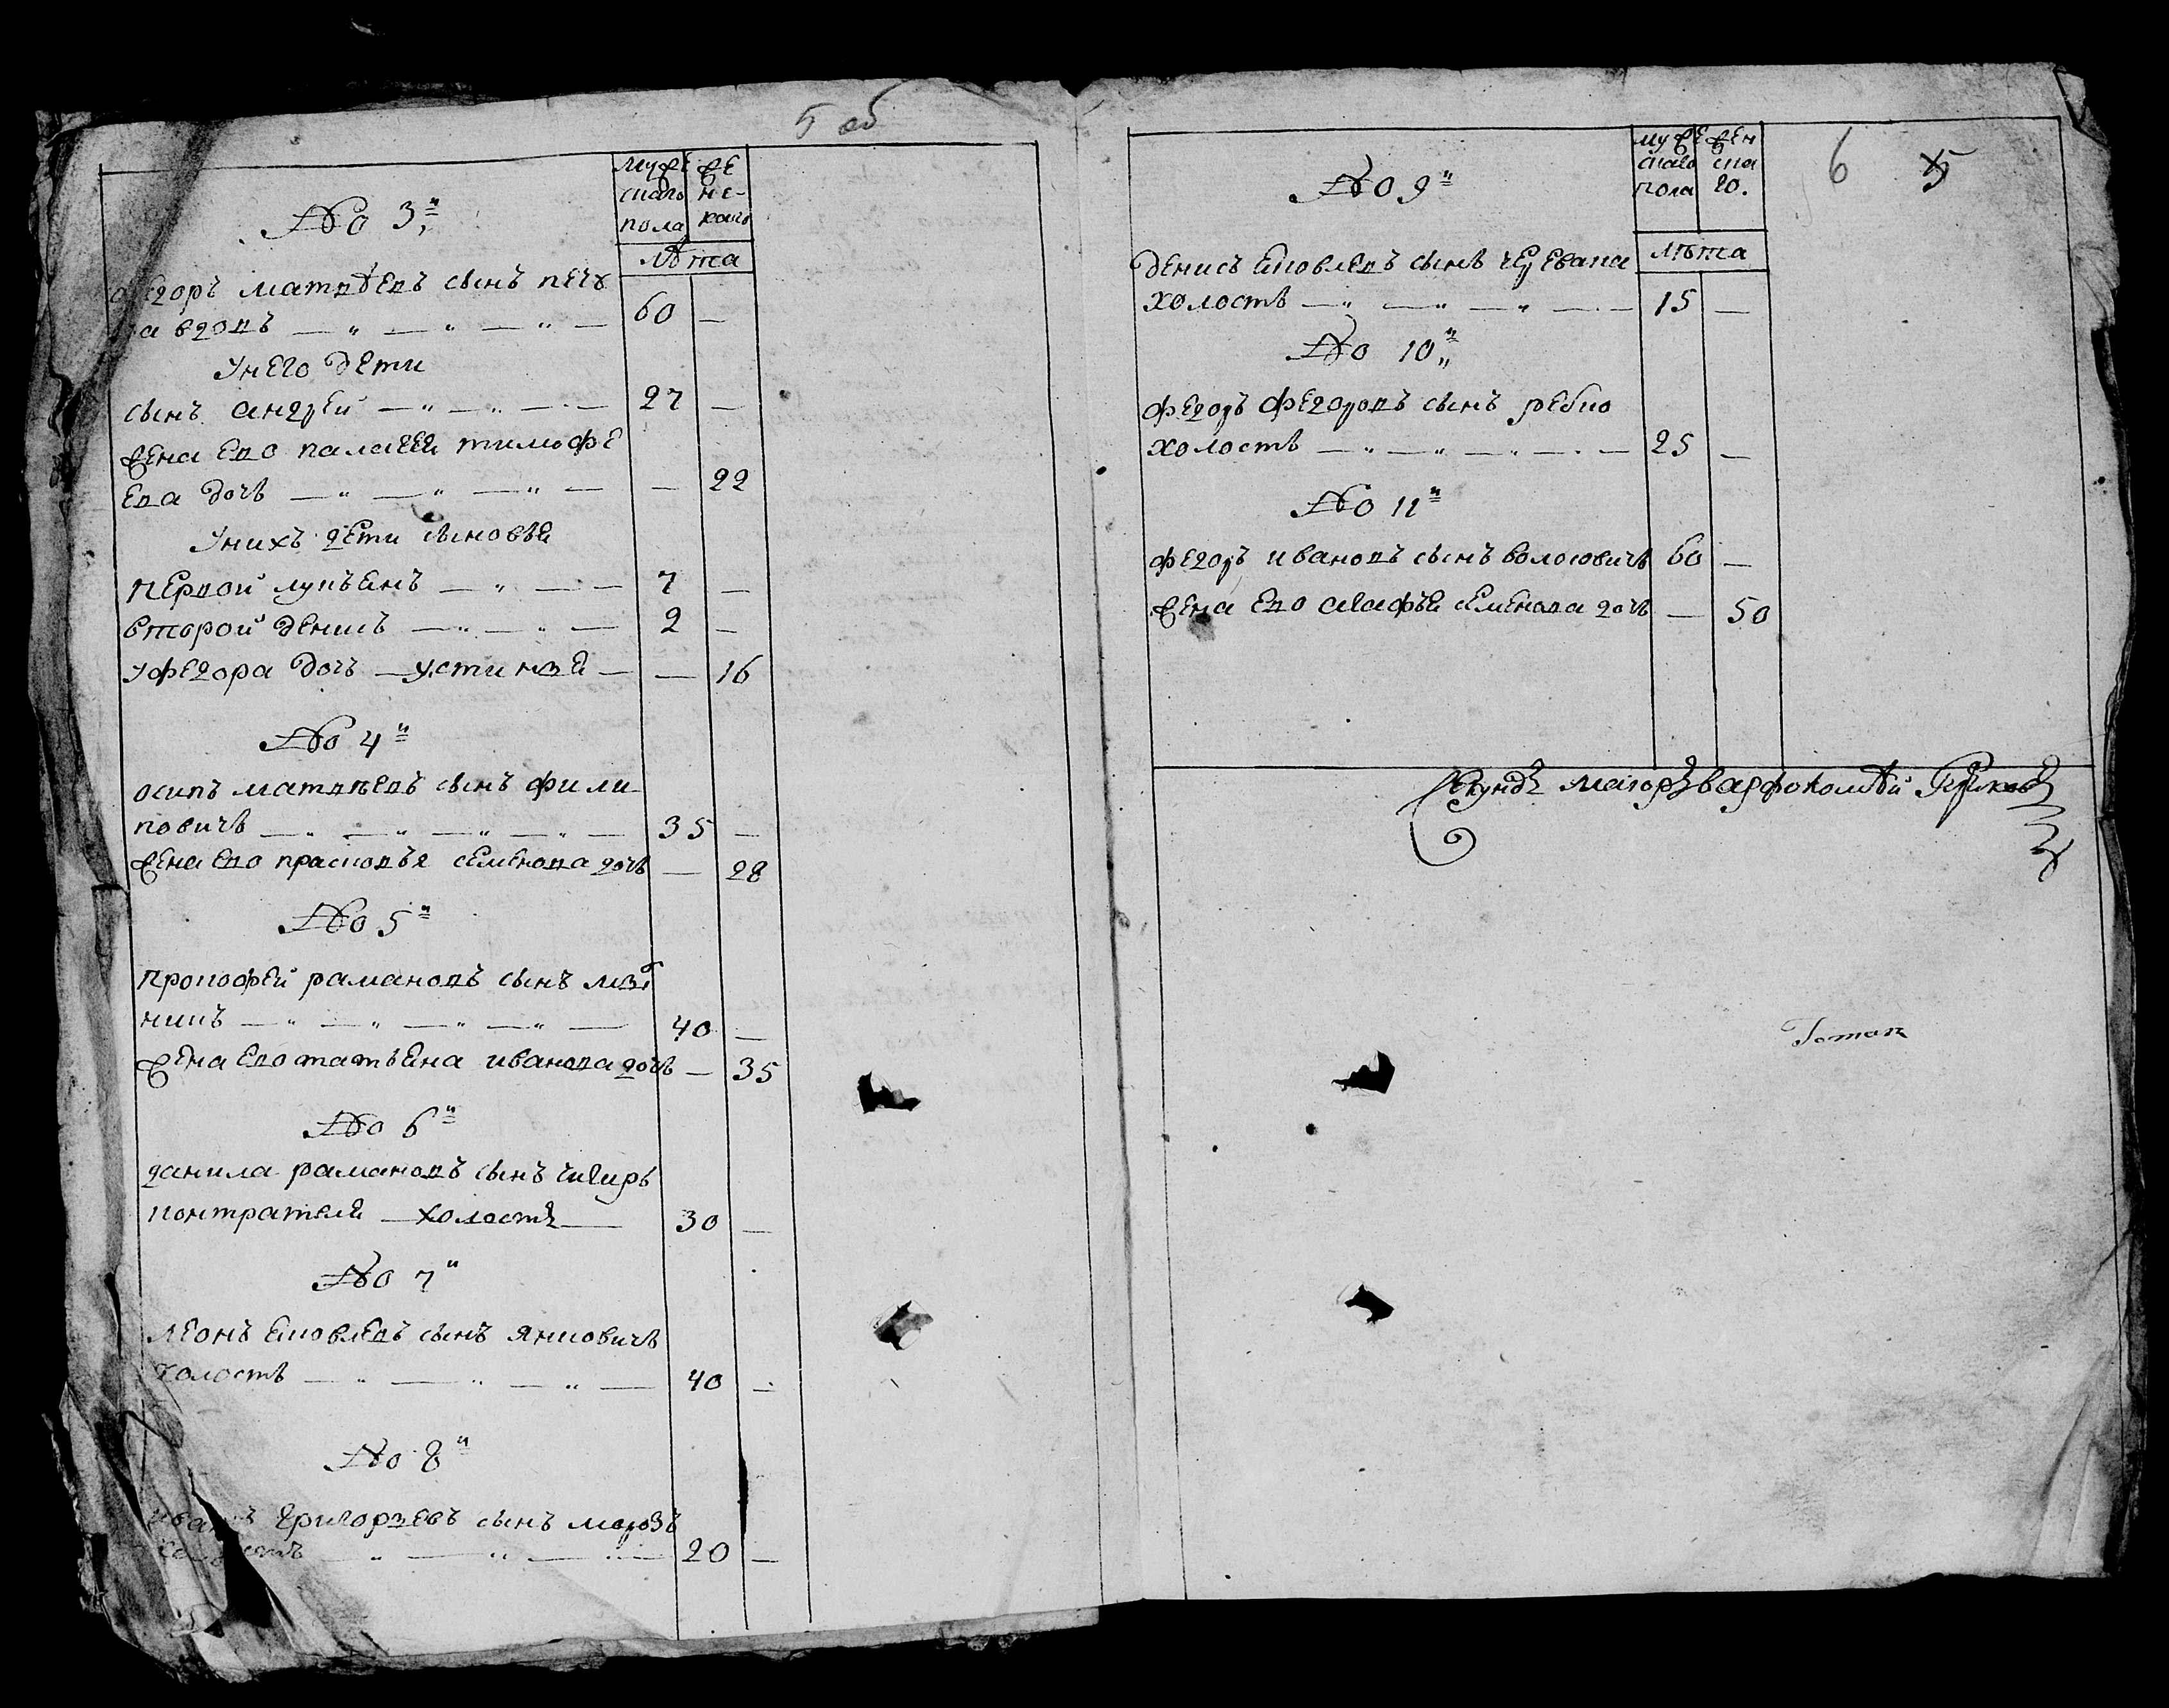 5 об
Муже
скаго
пола
же
нс-
каго
Лѣта
No 3й
Федоръ матвѣевъ сынъ печу
ра вдовъ 60 —
У него дети
сынъ андрей 27 —
жена ево палагея тимофе
ева дочь — 22
У нихъ дети сыновья
первой лукъянъ 7 —
второй денисъ 2 —
у федора дочь устинья — 16
No 4й
осипъ матвѣевъ сынъ фили
повичъ 35 —
жена ево прасковья семенова дочь — 28
No 5й
прокофей рамановъ сынъ
40 —
жена ево татьяна иванова дочь — 35
No 6й
данила рамановъ сынъ чигирь
холостъ 30 —
No 7й
леонъ яковлевъ сынъ янковичъ
холостъ 40 —
No 8й
иванъ григорьевъ сынъ морозъ
холостъ 20 —
6 5
Муже
скаго
пола
жен
ска
го.
лѣта
No 9й
денисъ яковлевъ сынъ
холостъ 15 —
No 10й
федоръ федоровъ сынъ ребко
холостъ 25 —
No 11й
федоръ ивановъ сынъ волосовичъ 60 —
жена ево агафья семенова дочь — 50
Секундъ маиоръ варфоломѣй